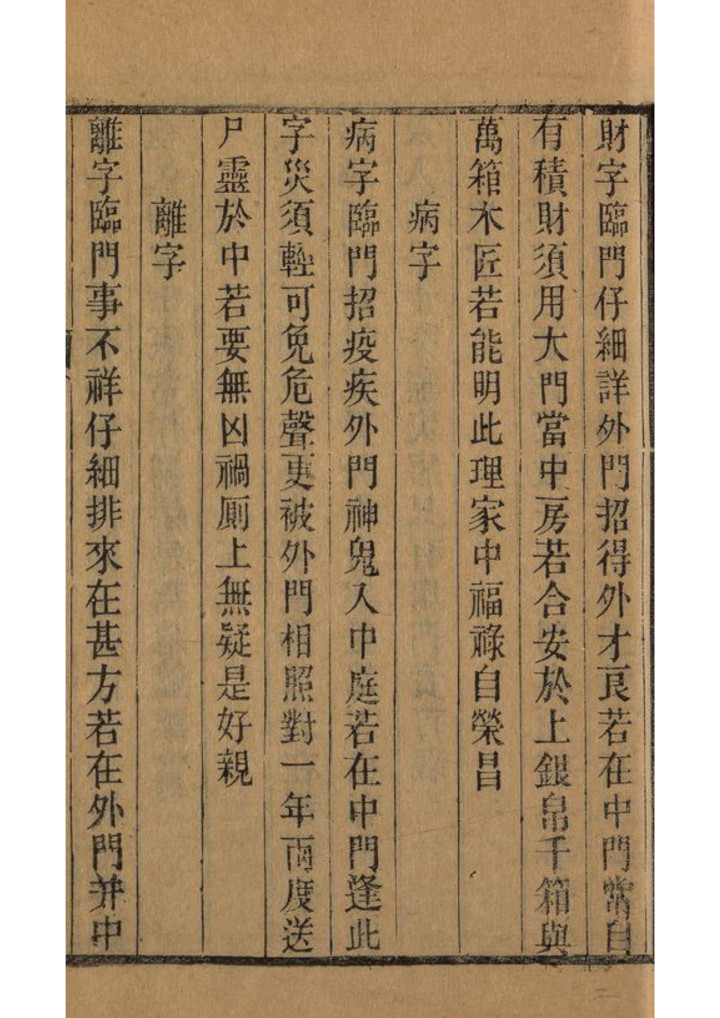 財字臨門仔細詳外門招得外才良若在中門常自
有積財須用大門當中房若合安於上銀帛千箱與
萬箱木匠若能明此理家中福祿自榮昌
病字
病字臨門招疫疾外門神鬼入中庭若在中門逢此
字災須輊可免危聲更被外門相照對一年兩度送
尸靈於中若要無凶禍厠上無疑是好親
離字
離字臨門事不祥仔細排來在甚方若在外門并中